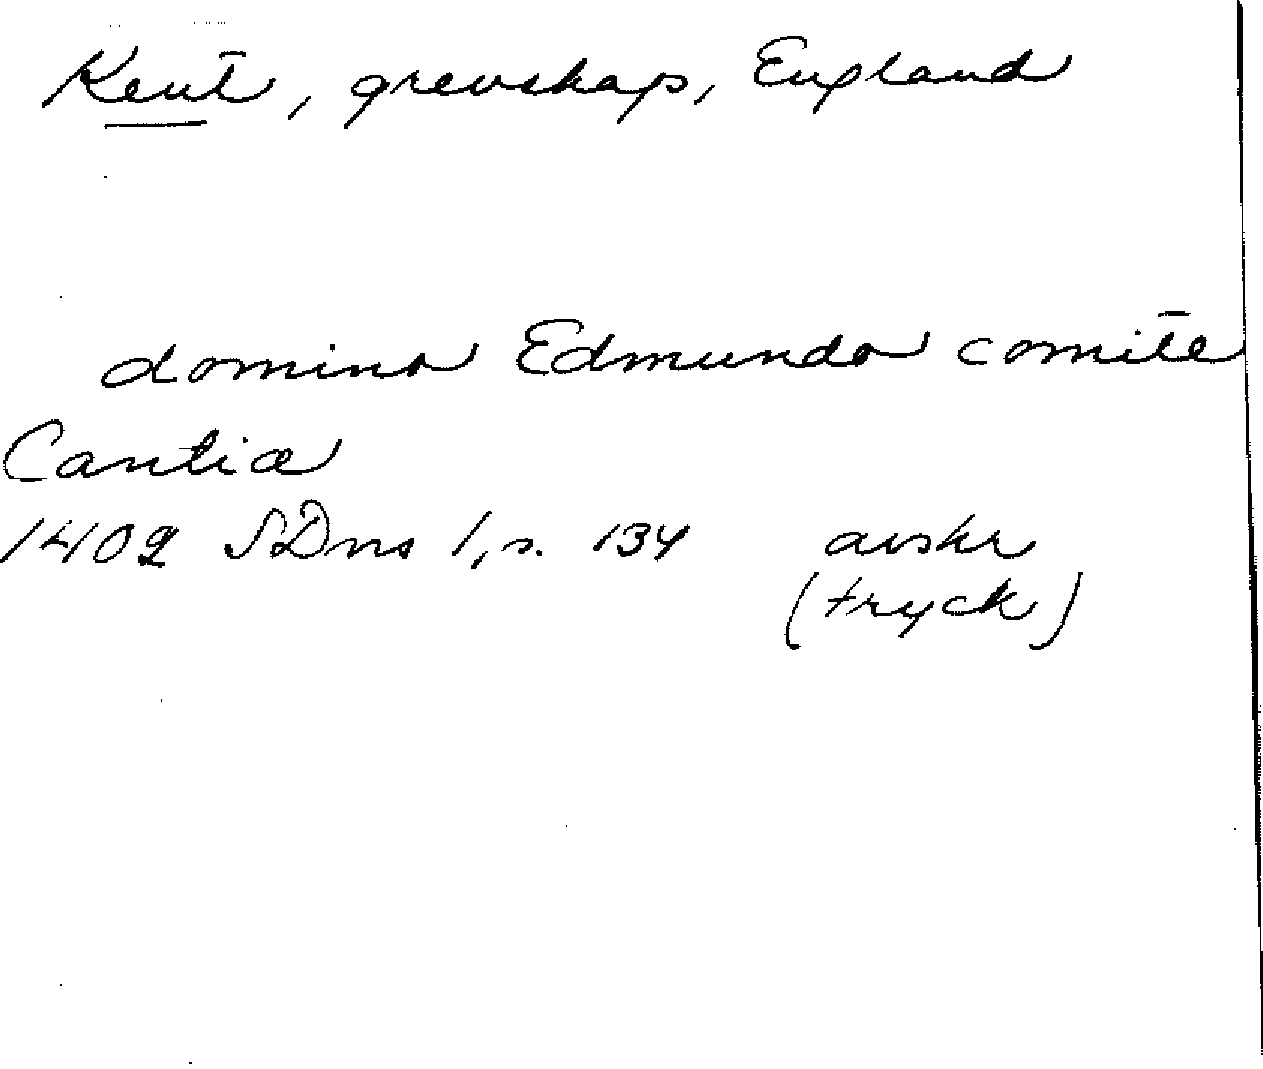 Kent, grevskap, England
domino Edmundo comite
Cantiæ
1402 SDns 1, s. 134 avskr
(tryck)